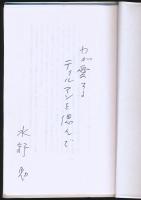 わが愛する
ティルマンを偲んで
水野 忠